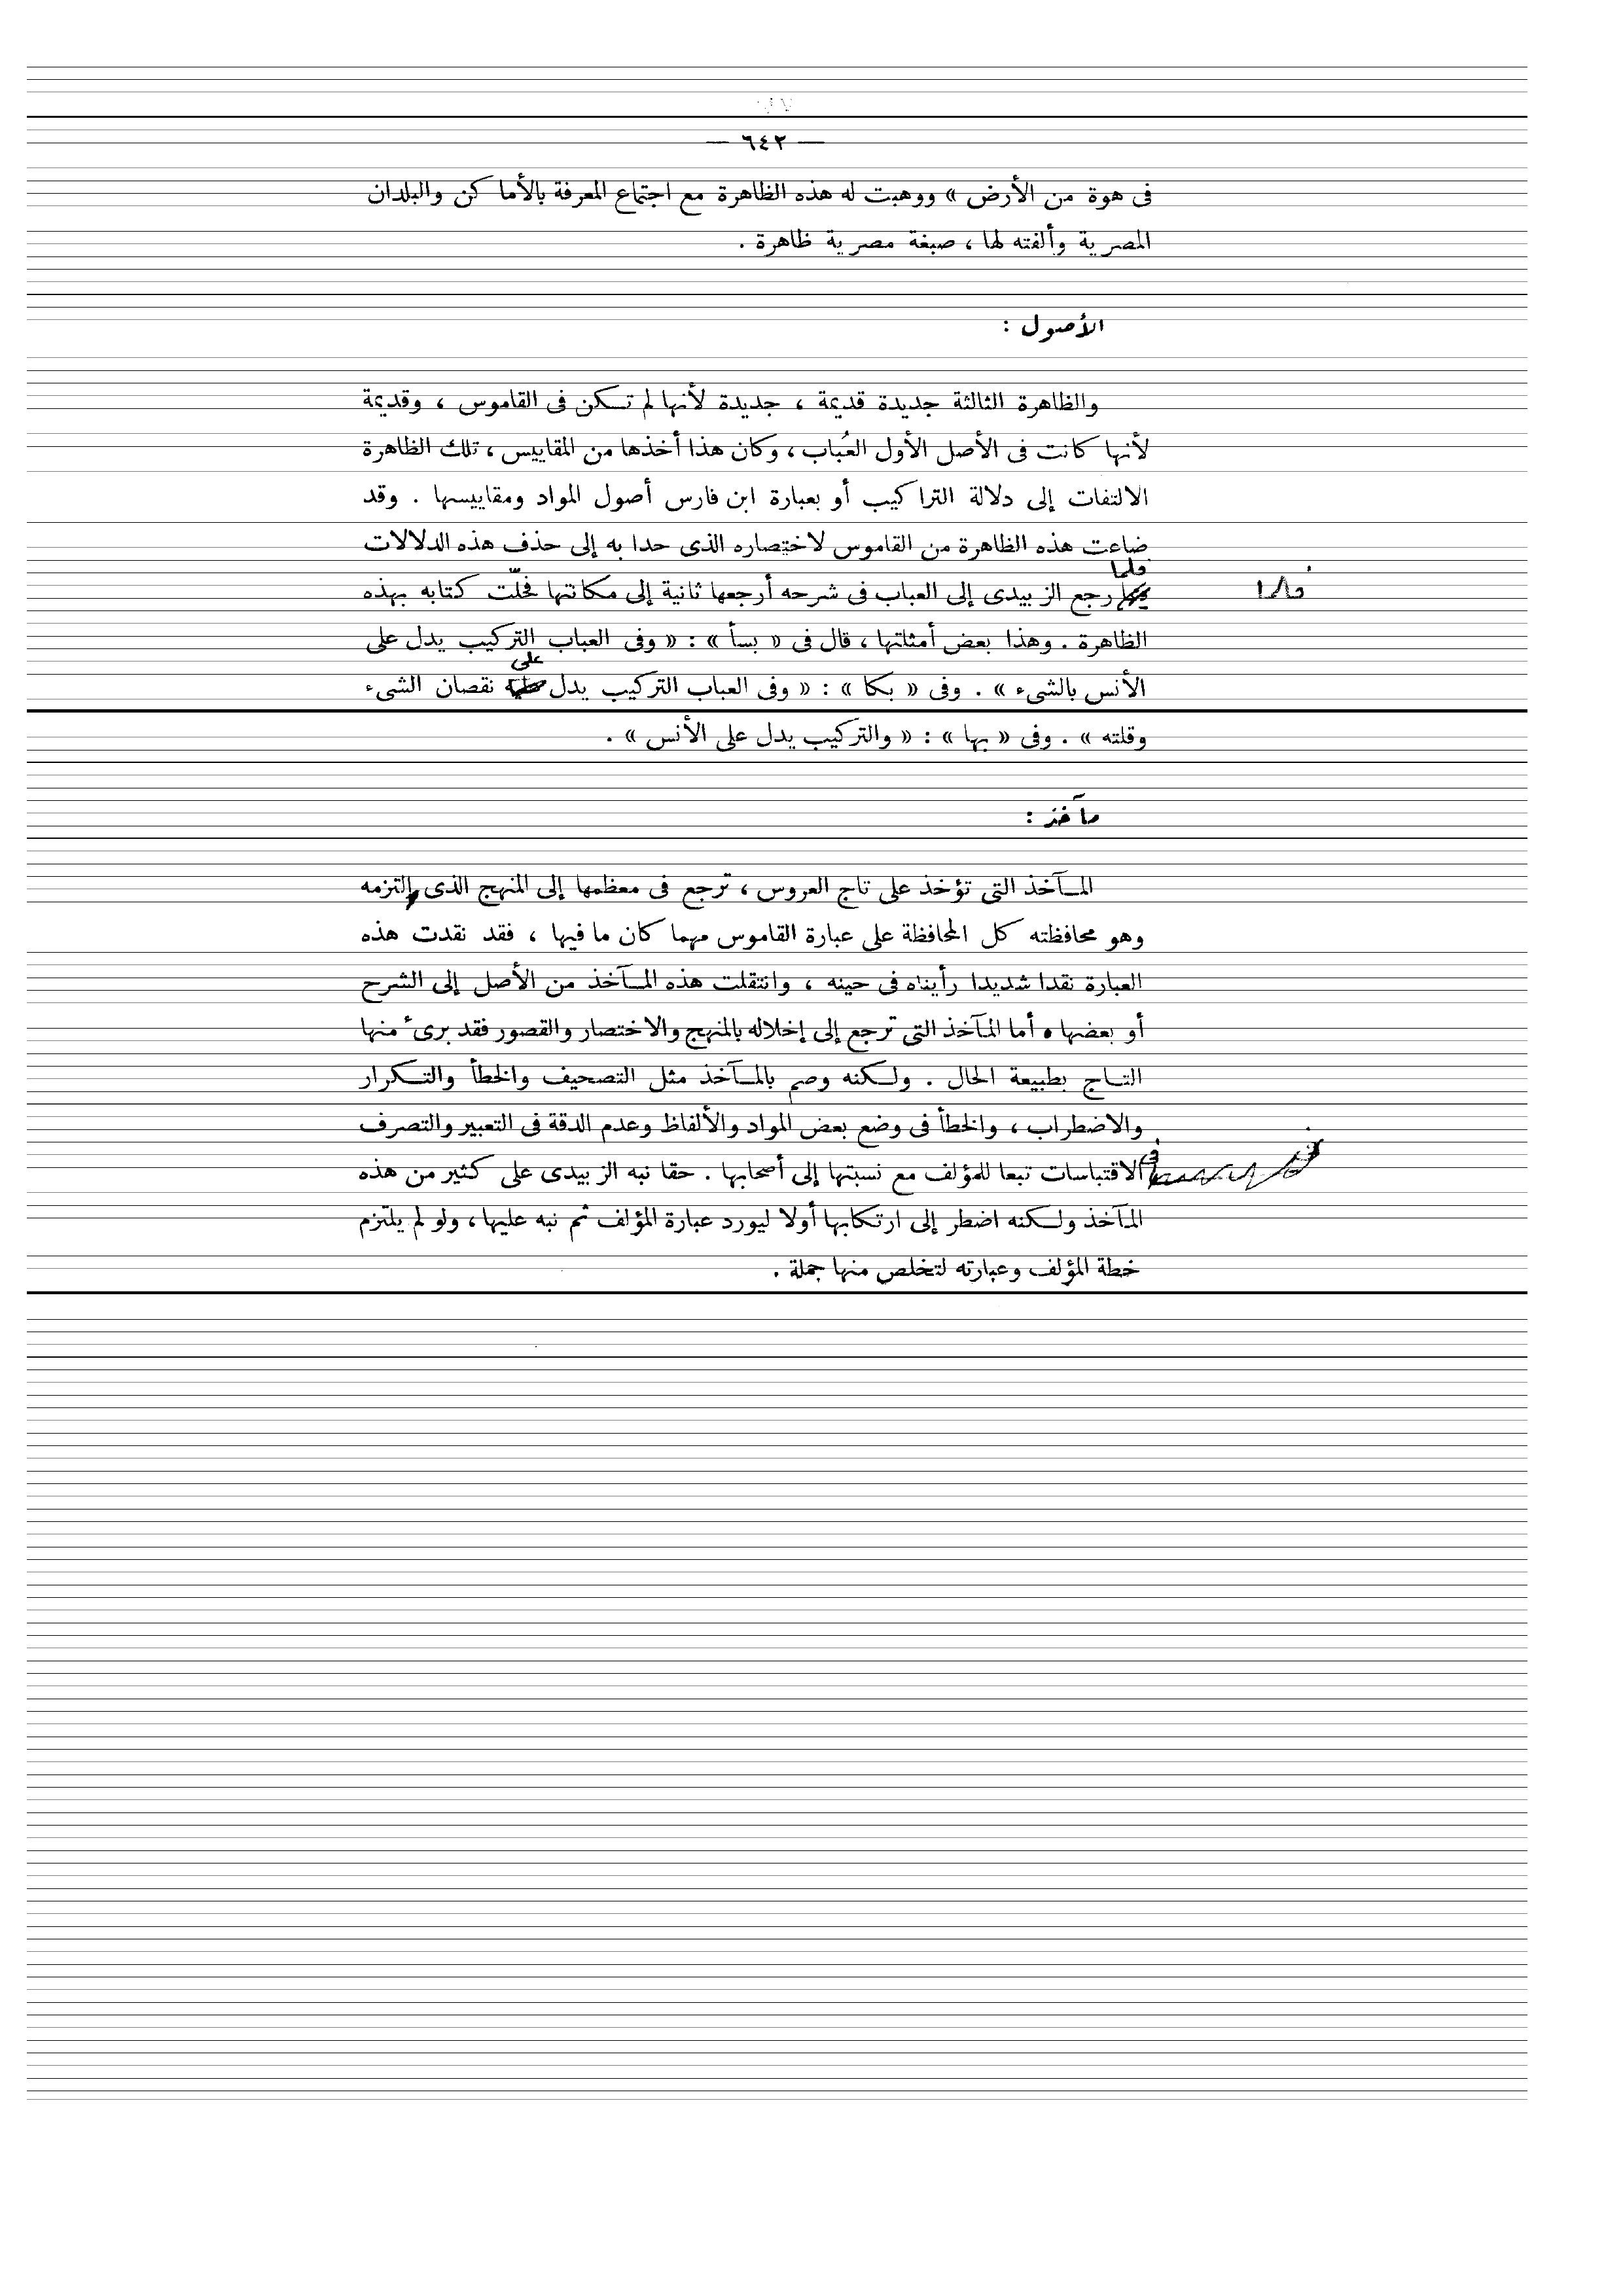 — ٦٤٢ —
فى هوة من الأرض » ووهبت له هذه الظاهرة مع اجتماع المعرفة بالأماكن والبلدان
المصرية وألفته لها ، صبغة مصرية ظاهرة .
الأصول :
والظاهرة الثالثة جديدة قديمة ، جديدة لأنها لم تكن فى القاموس ، وقديمة
لأنها كانت فى الأصل الأول العُباب ، وكان هذا أخذها من المقاييس ، تلك الظاهرة
الالتفات إلى دلالة التراكيب أو بعبارة ابن فارس أصول المواد ومقاييسها . وقد
ضاعت هذه الظاهرة من القاموس لاختصاره الذى حدا به إلى حذف هذه الدلالات
فلما رجع الزبيدى إلى العباب فى شرحه أرجعها ثانية إلى مكانتها فحلّت كتابه بهذه
فلما
الظاهرة . وهذا بعض أمثلتها ، قال فى « بسأ » : « وفى العباب التركيب يدل على
الأنس بالشىء » . وفى « بكا » : « وفى العباب التركيب يدل على نقصان الشىء
وقلته » . وفى « بها » : « والتركيب يدل على الأنس » .
مآخذ :
المآخذ التى تؤخذ على تاج العروس ، ترجع فى معظمها إلى المنهج الذى التزمه
وهو محافظته كل المحافظة على عبارة القاموس مهما كان ما فيها ، فقد نقدت هذه
العبارة نقدا شديدا رأيناه فى حينه ، وانتقلت هذه المآخذ من الأصل إلى الشرح
أو بعضها ، أما المآخذ التى ترجع إلى إخلاله بالمنهج والاختصار والقصور فقد برىء منها
التاج بطبيعة الحال . ولكنه وصم بالمآخذ مثل التصحيف والخطأ والتكرار
والاضطراب ، والخطأ فى وضع بعض المواد والألفاظ وعدم الدقة فى التعبير والتصرف
فى الاقتباسات تبعا للمؤلف مع نسبتها إلى أصحابها . حقا نبه الزبيدى على كثير من هذه
المآخذ ولكنه اضطر إلى ارتكابها أولا ليورد عبارة المؤلف ثم نبه عليها ، ولو لم يلتزم
خطة المؤلف وعبارته لتخلص منها جملة .